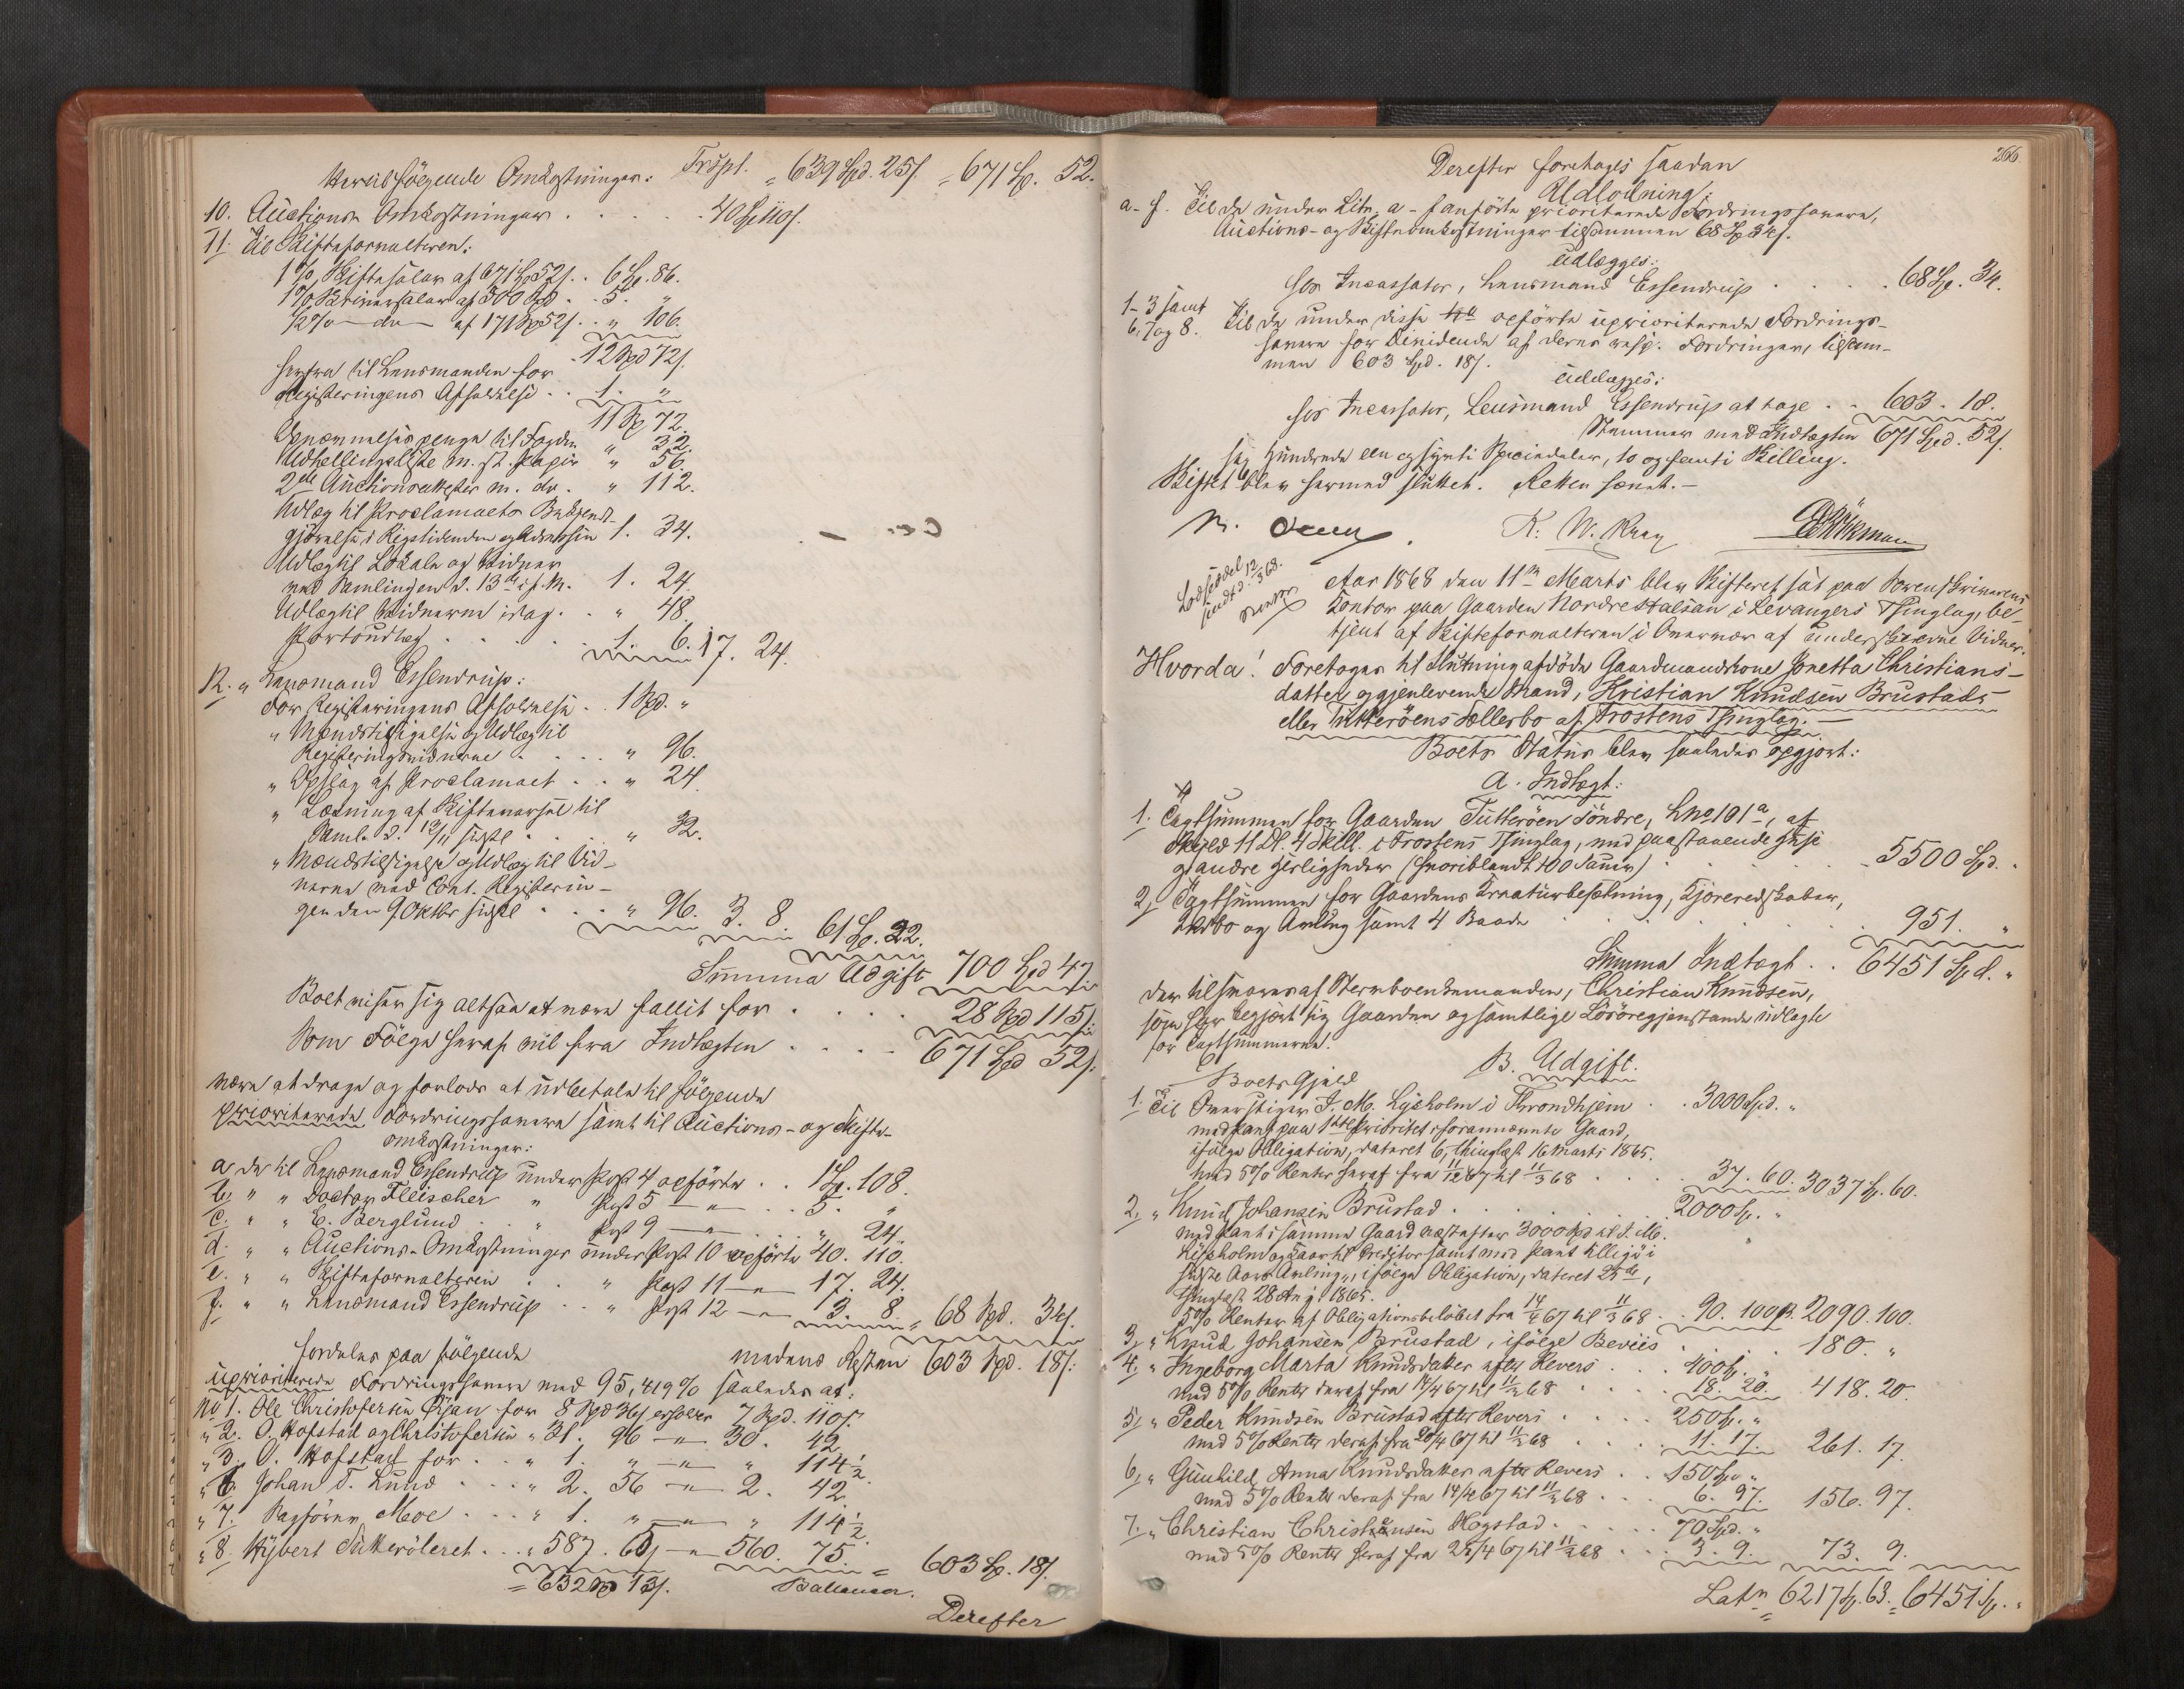 Hertil følgende Omkostninger: Trspt. = 639 Spd. 25 s. = 671 Sp. 52.
10. Auctions Omkostninger . . . 40 Sp 110 s.
11. Til Skifteforvalteren:
1 % Skiftesalær af 671 Sp 52 s. . 6 Sp. 86.
1 % Skriversalær af 500 Spd . . 5. "
1/2 % — do — af 171 Sp 52 s. . " 106.
12 Spd 72 s.
herfra til Lensmanden for
Registeringens Afholdelse . . 1. "
11 Sp 72.
Opnævnelsespenge til Fogden " 32.
Udhellingsliste m. st. Papir " 56.
2de Auctionsattester m. do. " 112.
Udlæg til Proclamaets Bekjendt-
gjørelse i Rigstidenden og Adressen 1. 34.
Udlæg til Lokale og Vidner
ved Samlingen d. 13de f. M. 1. 24.
Udlæg til Vidnerne idag . . " 48.
Portoudlæg . . . 1. 6. 17. 24.
12. " Lensmand Essendrup:
For Registeringens Afholdelse . . 1 Spd. "
" Mændstilsigelse og Udlæg til
Registeringsvidnerne . . . " 96.
" Opslag af Proclamaet . . " 24.
" Læsning af Skiftevarsel til
Saml. d. 12/11 sidstl . . . " 32.
" Mændstilsigelse og Udlæg til Vid-
nerne ved Cont. Registerin-
gen den 9 Oktbr sidstl . . . " 96. 3. 8. 61 Sp. 22.
Summa Udgift 700 Spd 47
Boet viser sig altsaa at være fallit for . . . . 28 Spd 115 s.
Som Følge heraf vil fra Indtægten . . . . 671 Spd 52 s.
være at drage og forlods at udbetale til følgende
prioriterede Fordringshavere samt til Auctions- og Skifte-
omkostninger:
a de til Lensmand Essendrup under Post 4 opførte . . 1 Sp. 108.
b. " " Doctor Fleischer " Post 5 — " — . . 5. "
c. " " E. Berglund . . " Post 9 — . . " 24.
d. " " Auctions-Omkostninger under Post 10 opførte 40. 110.
e. " " Skifteforvalteren . . " Post 11 — " — 17. 24.
f. " " Lensmand Essendrup . . " Post 12 — " — 3. 8. = 68 Spd. 34 s.
medens Resten 603 Spd. 18 s.
fordeles paa følgende
uprioriterede Fordringshavere med 95,419 % saaledes at:
No 1. Ole Christofersen Øjan for 8 Spd 36 s erholder 7 Spd. 110 s.
" 2. O. Hofstad og Christofersen " 31. 96 — " — 30. 42
" 3. O. Hofstad for . . " 1. " — " — " 114 1/2
" 6. Johan T. Lund . . . " 2. 56 — " — 2. 42.
" 7. Sagfører Moe . . . " 1. " — " — " 114 1/2.
" 8. Kybert Tutterøleret . . . " 587. 65 — " — 560. 75. = 603 Sp. 18 s.
= 632 Sp 13 s. Ballancer.
Derefter
266.
Derefter foretoges saadan
Udlodning:
a-f. Til de under Litr. a-f anførte prioriterede Fordringshavere,
Auctions- og Skifteomkostninger tilsammen 68 Sp 34 s.
udlægges:
hos Incassator, Lensmand Essendrup . . . . 68 Sp. 34.
1-3 samt
6, 7 og 8. Til de under disse No opførte uprioriterede Fordrings-
havere for Dividende af deres resp. Fordringer, tilsam-
men 603 Spd. 18 s.
udlægges:
hos Incassator, Lensmand Essendrup at tage . . 603. 18.
Stemmer med Indtægten 671 Spd. 52 s.
Sex hundrede een og sytti Speciedaler, to og femti Skilling.
Skiftet blev hermed sluttet. Retten hævet. —
K. W. Krag
Lodseddel
sendt d. 12/3 68.
Aar 1868 den 11te Marts blev Skifteret sat paa Sorenskriverens
Kontor paa Gaarden Nordre Stalsan i Levangers Thinglag, be-
tjent af Skifteforvalteren i Overvær af underskrevne Vidner.
Hvorda! Foretoges til Slutning afdøde Gaardmandskone Jonetta Christians-
datter og gjenlevende Mand, Kristian Knudsen Brustads
eller Tutterøens Fællesbo af Frostens Thinglag. —
Boets Status blev saaledes opgjort:
A. Indtægt:
1. Taxtsummen for Gaarden Tutterøen Søndre, L No 101 a, af
Skyld 11 Dl. 4 Skill. i Frostens Thinglag, med paastaaende Huse
og andre Herligheder (hvoriblandt 100 Sauer) . . . 5500 Spd. "
2, Taxtsummen for Gaardens Kreaturbesætning, Kjøreredskaber,
Indbo og Avling samt 4 Baade . . . . 951. "
Summa Indtægt . . 6451 Spd. "
der tilsvares af Stervboenkemanden, Christian Knudsen,
som har begjært sig Gaarden og samtlige Løsøregjenstande udlagte
for Taxtsummerne.
B. Udgift.
Boets Gjæld
1. Til Overstiger J. M. Lysholm i Throndhjem . . 3000 Spd. "
med Pant paa 1ste Prioritet i forannævnte Gaard,
ifølge Obligation, dateret 6, thinglæst 16 Marts 1865.
med 5 % Renter heraf fra 11/12 67 til 11/3 68 . . . 37. 60. 3037 Sp. 60.
2, " Knud Johansen Brustad . . . . 2000 Sp. "
med Pant i samme Gaard næstefter 3000 Spd til J. M.
Lysholm og Kaar til Creditor samt med Pant tillige i
sidste Aars Avling, ifølge Obligation, dateret 25de,
thinglæst 28 Aug. 1865.
5 % Renter af Obligationsbeløbet fra 14/4 67 til 11/3 68 . . 90. 100 s. 2090. 100.
3, " Knud Johansen Brustad, ifølge Beviis . . . . 180. "
4, " Ingeborg Marta Knudsdatter efter Revers . . . 400 Sp. "
med 5 % Renter deraf fra 14/4 67 til 11/3 68 . . . 18. 20. 418. 20.
5, " Peder Knudsen Brustad efter Revers . . . . 250 Sp. "
med 5 % Renter deraf fra 20/4 67 til 11/3 68 . . . 11. 17. 261. 17.
6, " Gunhild Anna Knudsdatter efter Revers . . 150 Sp. "
med 5 % Renter deraf fra 14/4 67 til 11/3 68 . . . 6. 97. 156. 97.
7. " Christian Christensen Hogstad . . . . 70 Spd. "
med 5 % Renter heraf fra 25/4 67 til 11/3 68 . . . 3. 9. 73. 9.
Lats 6217 Sp. 63. = 6451 Sp. "